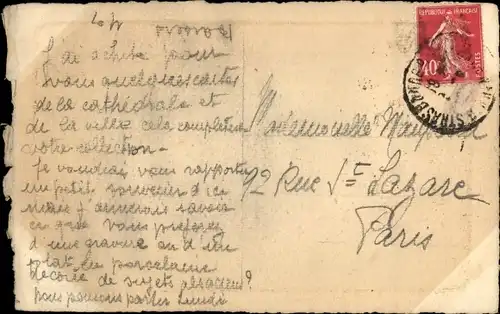 J'ai acheté pour
vous quelques cartes
de la cathédrale et
de la ville cela complètera
votre collection -
Je voudrais vous rapporter
un petit souvenir d'ici
mais j'aimerais savoir
ce que vous préférez
d'une gravure ou d'un
plat en porcelaine
décorée de sujets alsaciens?
nous pouvons parler lundi
Mademoiselle
12 Rue St Lazare
Paris
REPUBLIQUE FRANÇAISE
40
POSTES
STRASBOURG